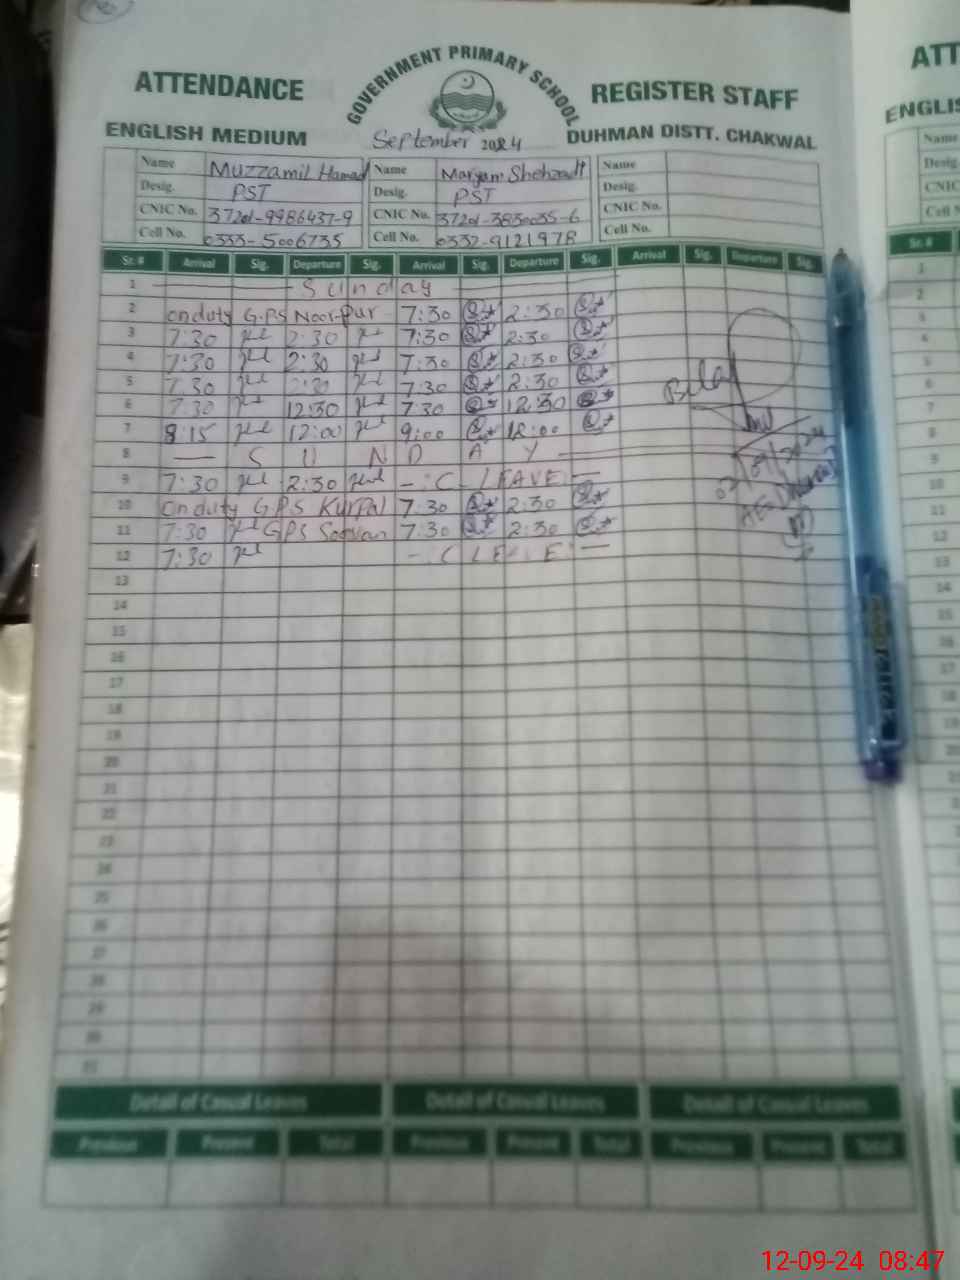 ATTENDANCE
GOVERNMENT PRIMARY SCHOOL
REGISTER STAFF
ENGLISH MEDIUM
September 2024
DUHMAN DISTT. CHAKWAL
Name Muzzamil Hamad Name Maryam Shehzadi Name
Desig. PST Desig. PST Desig.
CNIC No. 37201-9986437-9 CNIC No. 37201-3830035-6 CNIC No.
Cell No. 0333-5006735 Cell No. 0332-9121978 Cell No.
Sr. # Arrival Sig. Departure Sig. Arrival Sig. Departure Sig. Arrival Sig. Departure Sig.
1 Sunday
2 onduty G.P.S Noorpur 7:30 2:30
3 7:30 2:30 7:30 2:30
4 7:30 2:30 7:30 2:30
5 7:30 2:30 7:30 2:30
6 7:30 12:30 7:30 12:30
7 8:15 12:00 9:00 12:00
8 S U N D A Y
9 7:30 2:30 C LEAVE
10 onduty G.P.S Kurpal 7:30 2:30
11 7:30 GPS 7:30 2:30
12 7:30
13
14
15
16
17
18
19
20
21
22
23
24
25
26
27
28
29
30
31
Detail of Casual Leaves Detail of Casual Leaves Detail of Casual Leaves
Previous Present Total Previous Present Total Previous Present Total
ATT
ENGLIS
Name
Desig.
CNIC
Cell N
Sr. #
12-09-24 08:47